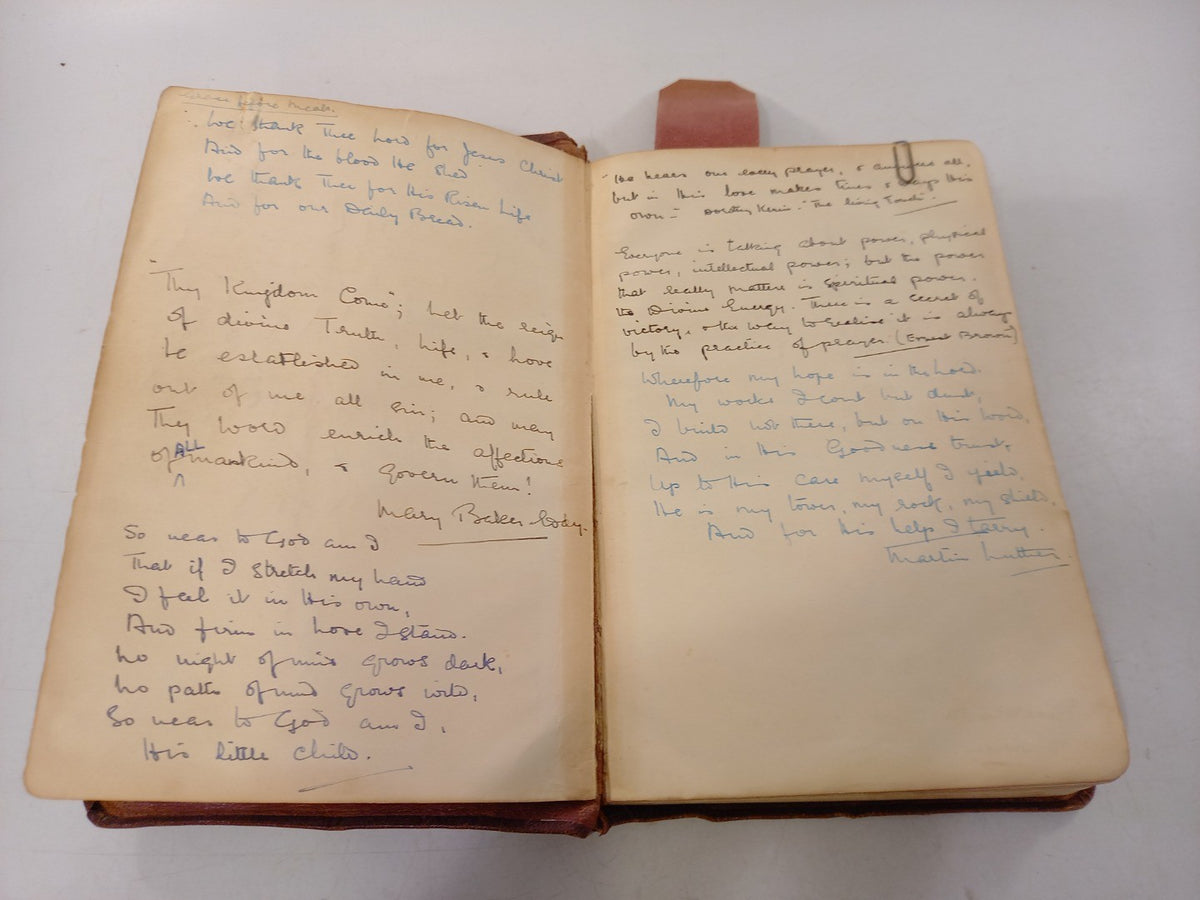 Grace before Meals.
We thank Thee Lord for Jesus Christ
And for the blood He shed
We thank Thee for His Risen Life
And for our Daily Bread.
"Thy Kingdom Come"; Let the reign
of divine Truth, Life, & Love
be established in me, & rule
out of me all sin; and may
Thy Word enrich the affections
of ALL mankind, & govern them!
Mary Baker Eddy.
So near to God am I
That if I stretch my hand
I feel it in His own,
And firm in Love I stand.
No night of mine grows dark,
No path of mind grows wild,
So near to God am I,
His little child.
"He hears our every prayer, & answers all,
but in His love makes times & ways His
own" - Dorothy Kerin. "The Living Touch".
Everyone is talking about power, physical
power, intellectual power; but the power
that really matters is spiritual power.
the Divine Energy. There is a secret of
victory, & the way to realise it is always
by the practice of prayer. (Ernest Brown)
Wherefore my hope is in the Lord.
My works I count but dust,
I build not there, but on His word,
And in His Goodness trust,
Up to His care myself I yield,
He is my tower, my rock, my shield,
And for His help I tarry.
Martin Luther.